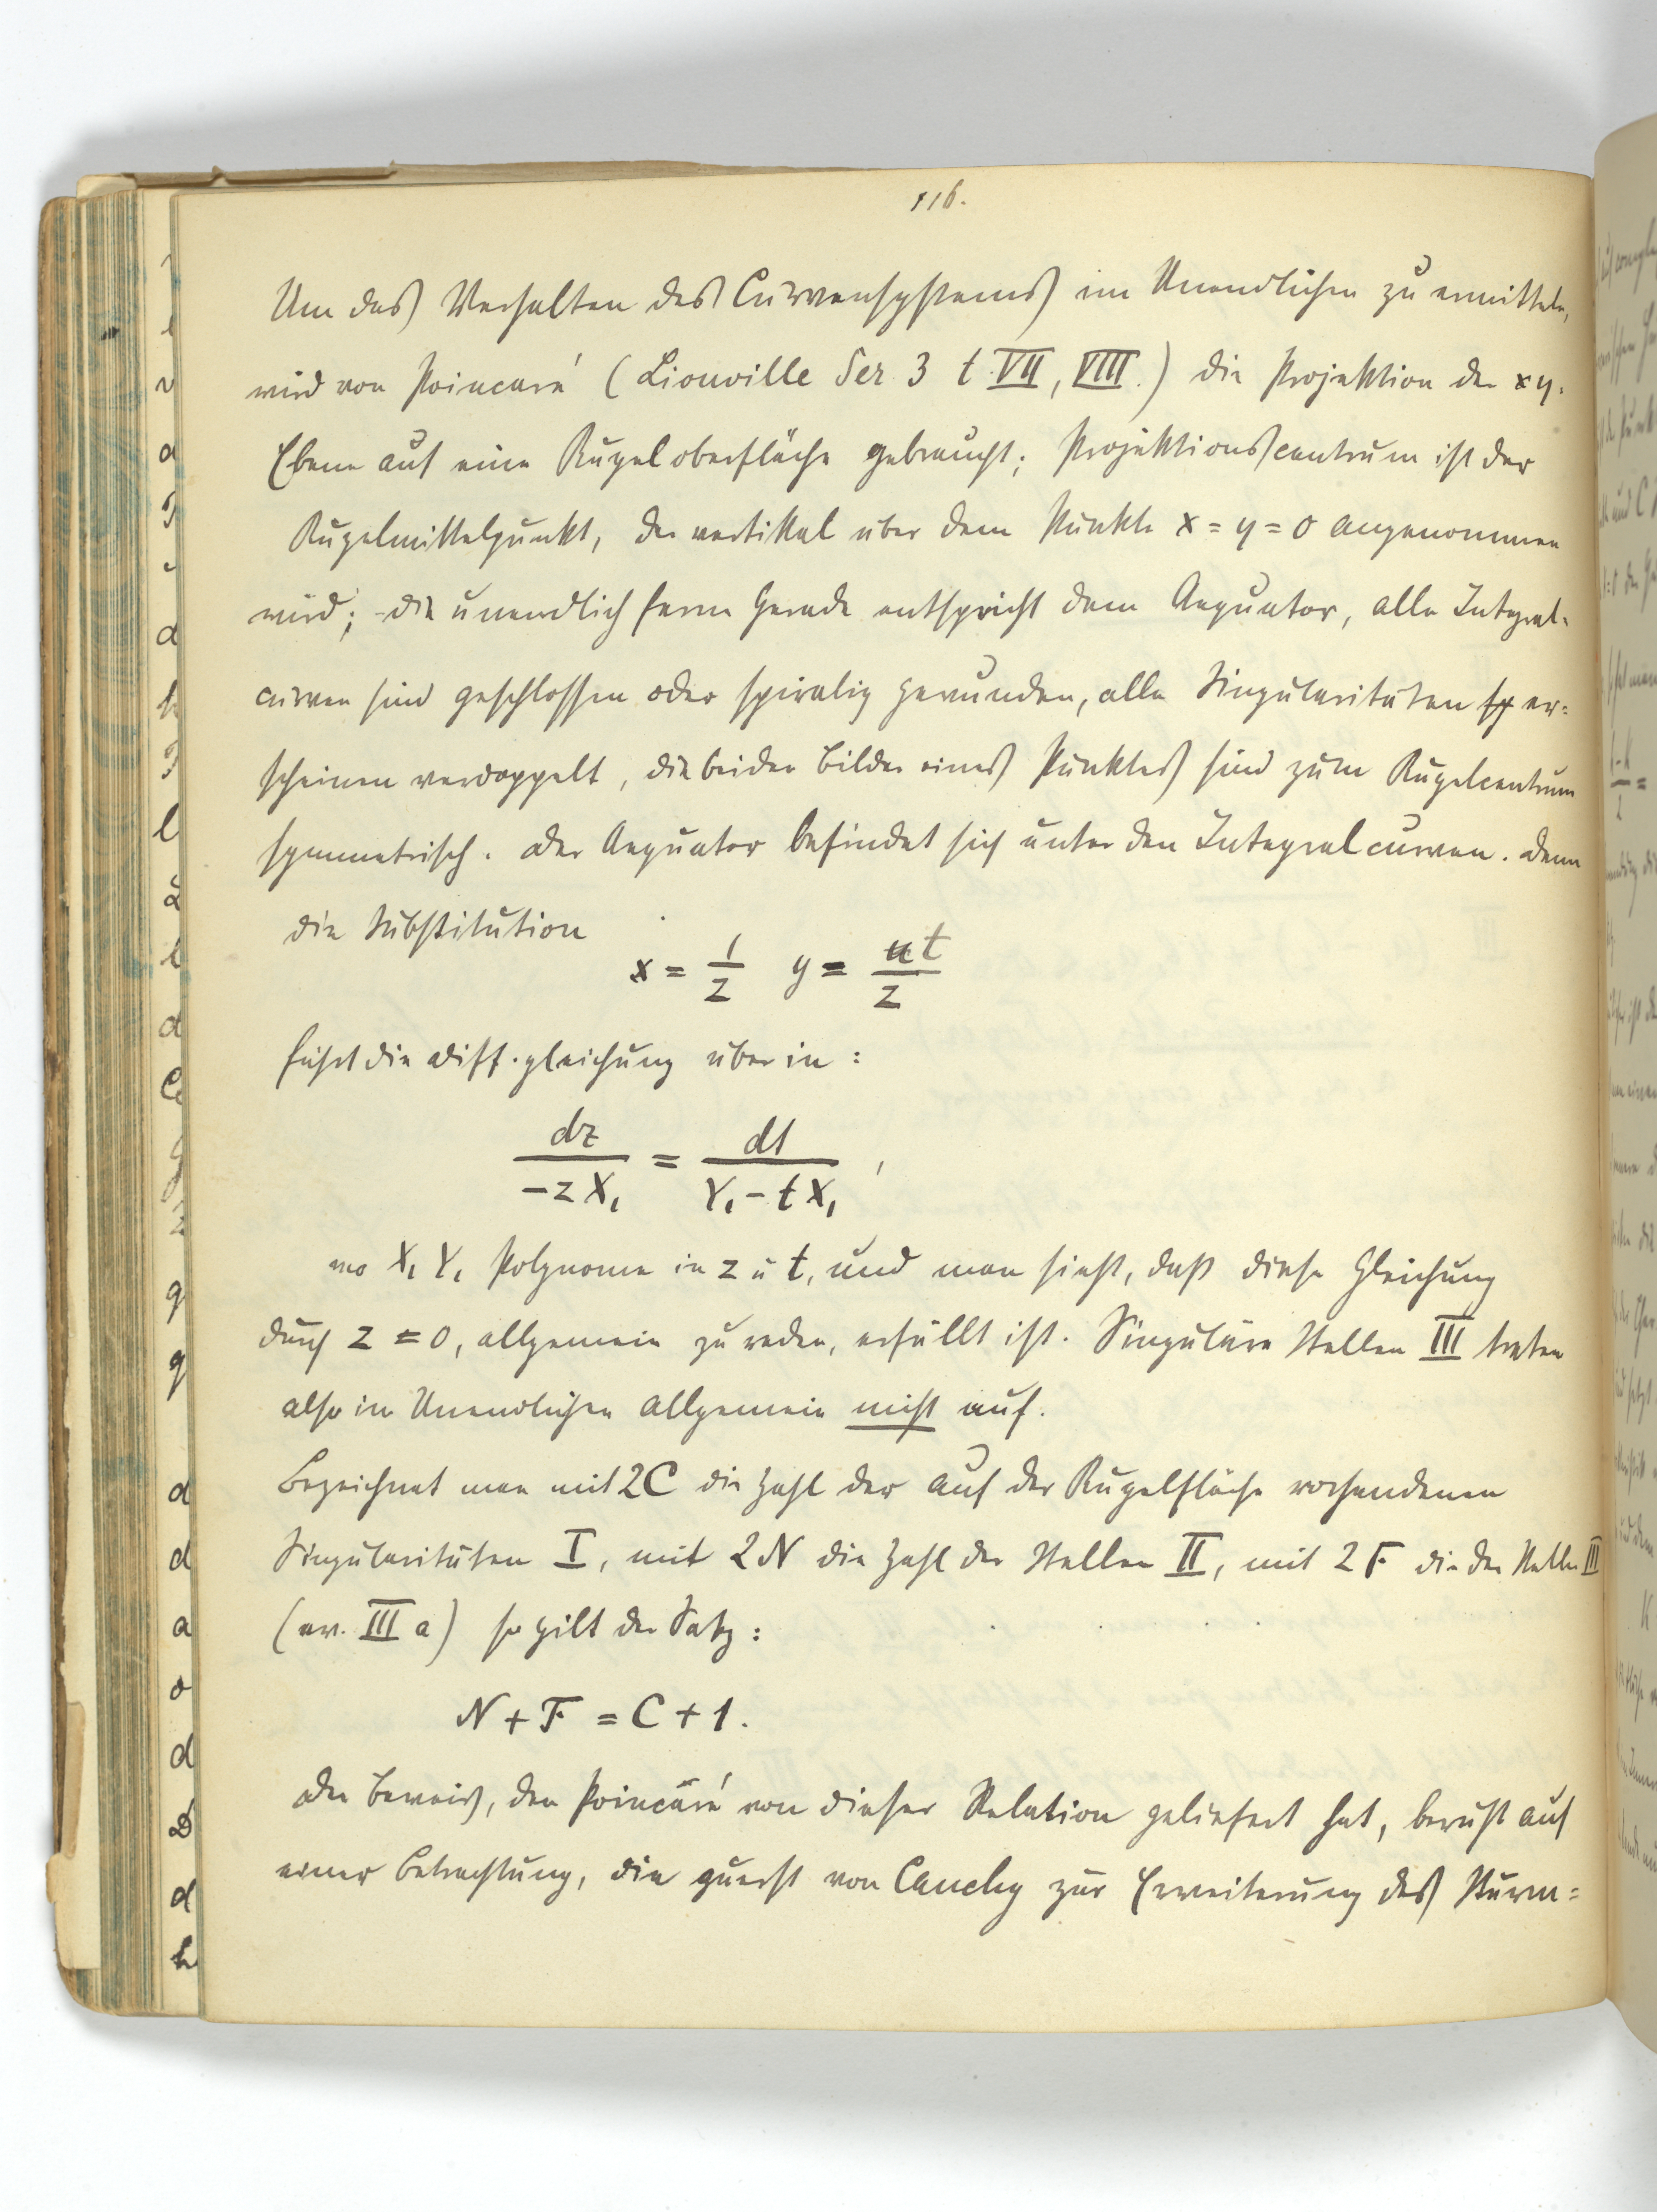 116.
Um das Verhalten des Curvensystems im Unendlichen zu ermitteln,
wird von Poincaré (Liouville Ser 3 t. VII, VIII.) die Projektion der xy-
Ebene auf eine Kugeloberfläche gebraucht; Projektionscentrum ist der
Kugelmittelpunkt, der vertikal über dem Punkte x = y = 0 angenommen
wird; die unendlich ferne Gerade entspricht dem Aequator, alle Integral-
curven sind geschlossen oder spiralig gewunden, alle Singularitäten er-
scheinen verdoppelt, die beiden Bilder eines Punktes sind zum Kugelcentrum
symmetrisch. Der Aequator befindet sich unter den Integralcurven. Denn
die Substitution
x = 1/z y = t/z
führt die Diff.gleichung über in:
dz/(-zX₁) = dt/(Y₁ - tX₁),
wo X₁ Y₁ Polynome in z u t, und man sieht, daß diese Gleichung
durch z = 0, allgemein zu reden, erfüllt ist. Singuläre Stellen III treten
also im Unendlichen allgemein nicht auf.
Bezeichnet man mit 2C die Zahl der auf der Kugelfläche vorhandenen
Singularitäten I, mit 2N die Zahl der Stellen II, mit 2F die der Stellen III
(ev. III a) so gilt der Satz:
N + F = C + 1.
Der Beweis, den Poincaré von dieser Relation geliefert hat, beruht auf
einer Betrachtung, die zuerst von Cauchy zur Erweiterung des Sturm=